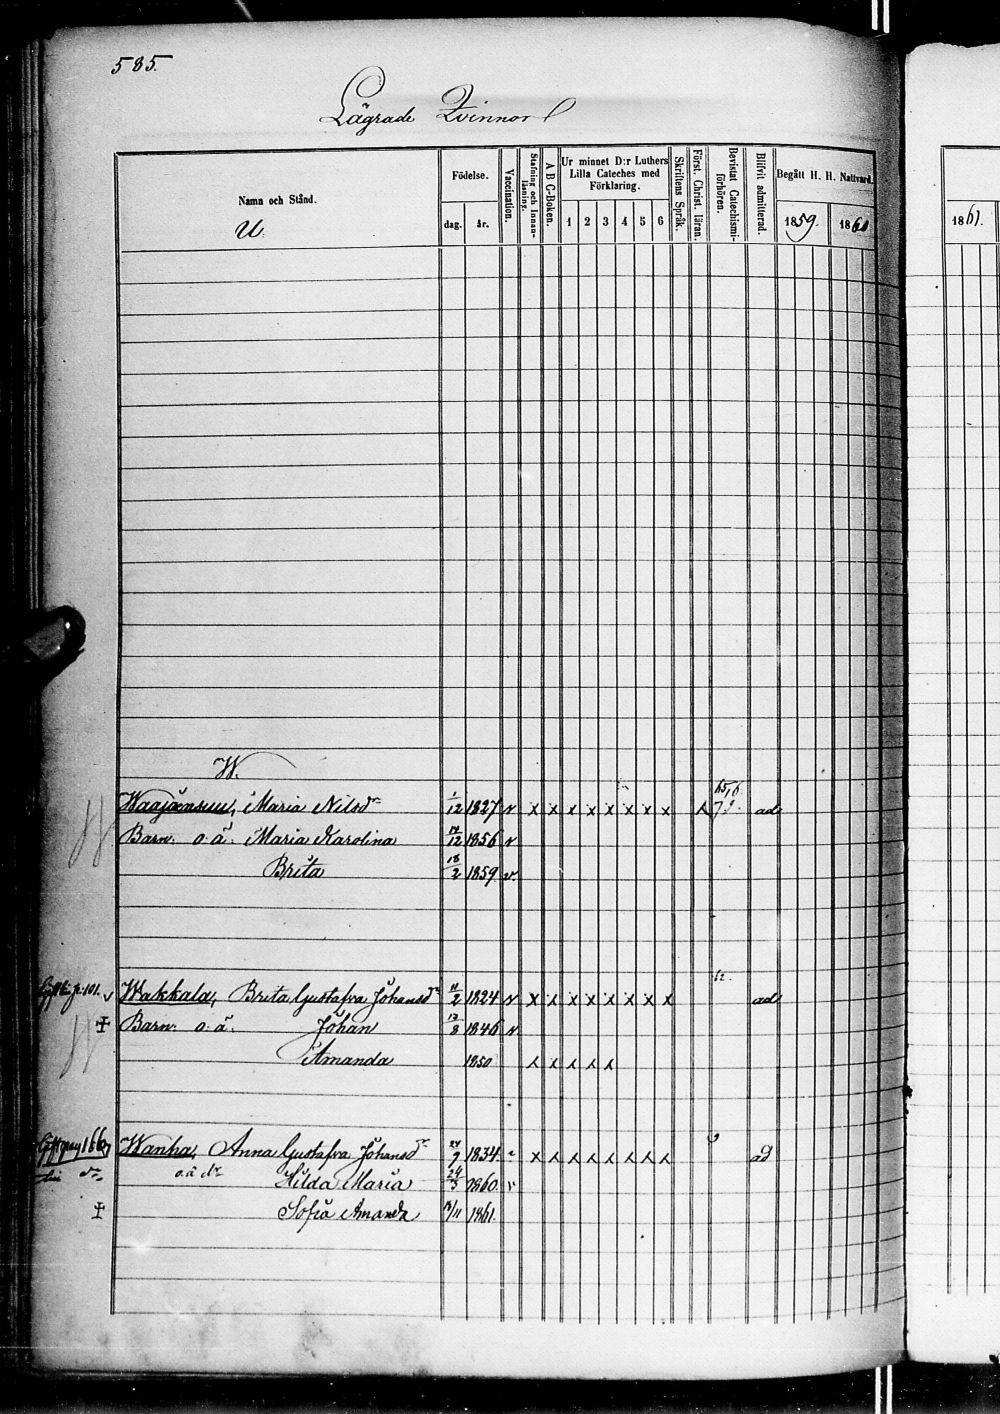 585.
Lägrade Qvinnor
Namn och Stånd.
Födelse.
dag. år.
Vaccination.
Stafning och Innanläsning.
A B C-Boken.
Ur minnet D:r Luthers Lilla Cateches med Förklaring.
1 2 3 4 5 6
Skriftens Språk.
Först. Christ. läran.
Bevistat Catechismiförhören.
Blifvit admitterad.
Begått H. H. Nattvard.
1859. 1860
1861.
U.
W.
65,6
Waajansuu, Maria Nilsdr 1/12 1827 v x x x x x x x x x ad
Barn. o. ä. Maria Karolina 12 1856 v
Brita 18/2 1859 v.
Wakkala, Brita Gustafva Johansdr 11/2 1824 v x x x x x x x x ad
Barn. o. ä. Johan 13/8 1846 v
Amanda 1850 x x x x x
Wanha, Anna Gustafva Johansdr 24/9 1834 x x x x x x x x ad
o. ä dr Hilda Maria 24/3 1860. v
Sofia Amanda /11 1861.